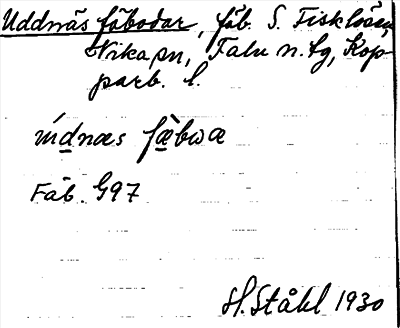 Uddnäs fäbodar, fäb. S. Fisklösen,
Vika sn, Falu n. tg, Kop-
parb. l.
fæ̀bωæ
Fäb. G97
H. Ståhl 1930